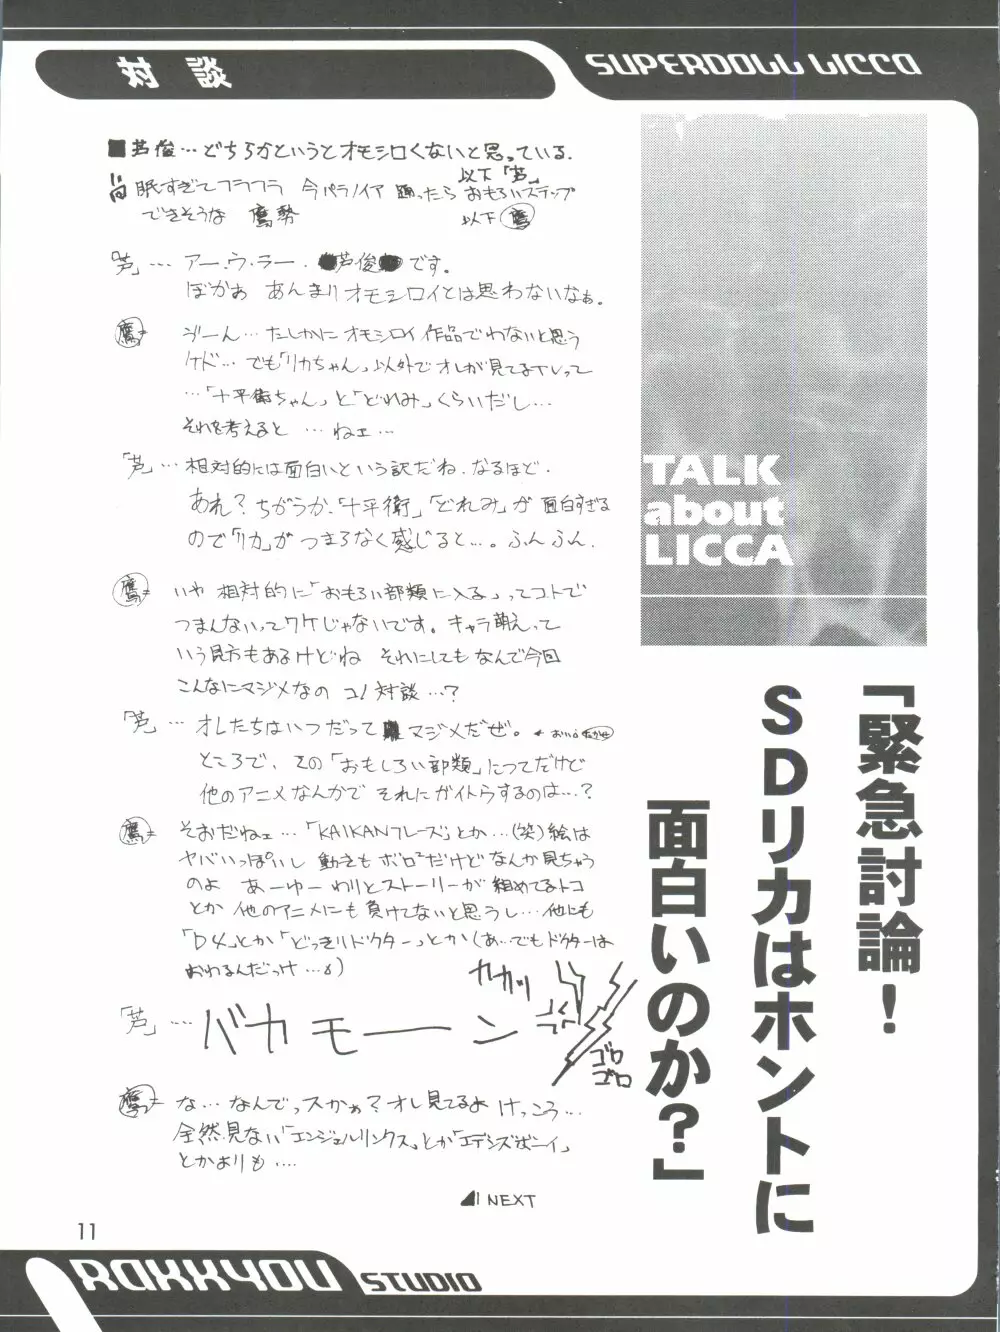 対談
SUPERDOLL LICCA
■芦俊…どちらかというとオモシロくないと思っている.
以下「芦」
眠すぎてフラフラ 今パラノイア 踊ったら おもろいステップ
できそうな 鷹勢 以下 鷹
「芦」… アー.ウ.ラー. 芦俊 です.
ぼかぁ あんまりオモシロイとは思わないなぁ.
鷹= ゔーん…たしかに オモシロイ作品でわないと思う
ケド… でも「リカちゃん」以外でオレが見てるTVって
…「十平衛ちゃん」と「どれみ」くらいだし…
それを考えると …ねェ…
「芦」… 相対的には面白いという訳だね.なるほど.
あれ?ちがうか.「十平衛」「どれみ」が 面白すぎる
ので「リカ」が つまらなく感じると…。ふんふん.
鷹= いや 相対的に「おもろい部類に入る」ってコトで
つまんないってワケじゃないです。キャラ萌えって
いう見方もあるけどね それにしても なんで今回
こんなにマジメなの コノ対談…?
「芦」… オレたちはいつだって マジメだぜ。
ところで、その「おもしろい部類」についてだけど
他のアニメなんかで それにガイトウするのは…?
鷹= そおだねェ…「KAIKANフレーズ」とか…(笑)絵は
ヤバいっぽいし 動きも ボロ²だけど なんか見ちゃう
のよ あーゆー わりとストーリーが 組めてるトコ
とか 他のアニメにも 負けてないと思うし…他にも
「D4」とか「どっきりドクター」とか(あ…でもドクターは
おわるんだっけ…。)
カカッ
「芦」… バカモーーン
ゴロ
ゴロ
鷹= な…なんでっスかぁ?オレ見てるよ けっこう…
全然見ない「エンジェルリンクス」とか「エデンズボーイ」
とかよりも….
NEXT
TALK
about
LICCA
「緊急討論!
SDリカはホントに
面白いのか?」
11
RAKKYOU STUDIO